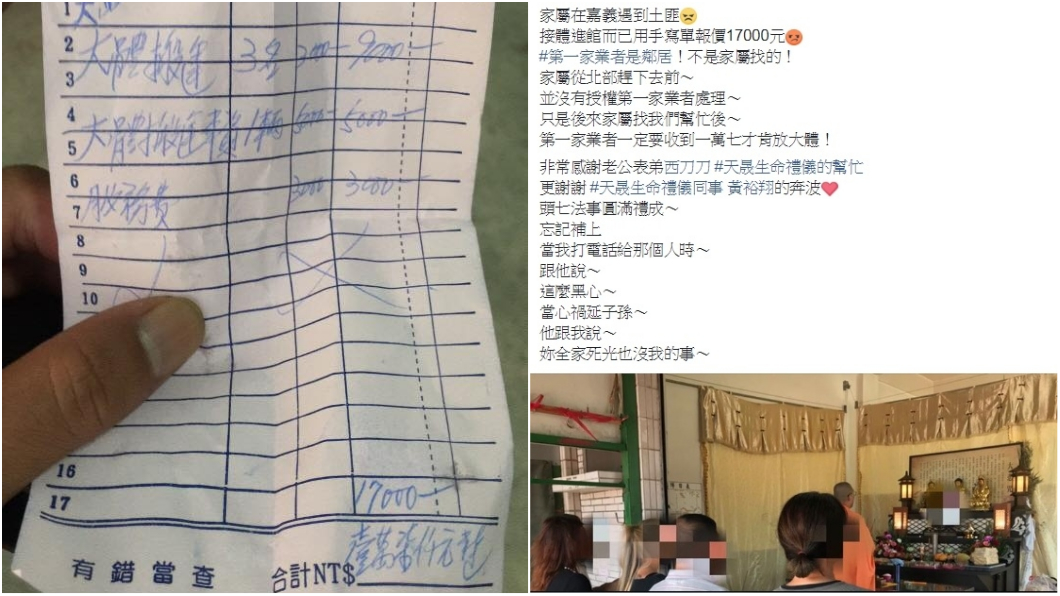 1 大
2 大體搬運 3名 3000 9000
3
4
5 大體搬運車資 1輛 5000 5000
6 3000 3000
7 服務費
8
9
10
16
17 17000
有錯當查 合計NT$
家屬在嘉義遇到土匪😠
接體進館而已用手寫單報價17000元😡
#第一家業者是鄰居！不是家屬找的！
家屬從北部趕下去前～
並沒有授權第一家業者處理～
只是後來家屬找我們幫忙後～
第一家業者一定要收到一萬七才肯放大體！
非常感謝老公表弟西刀刀 #天晟生命禮儀的幫忙
更謝謝 #天晟生命禮儀同事 黃裕翔的奔波❤️
頭七法事圓滿禮成～
忘記補上
當我打電話給那個人時～
跟他說～
這麼黑心～
當心禍延子孫～
他跟我說～
妳全家死光也沒我的事～